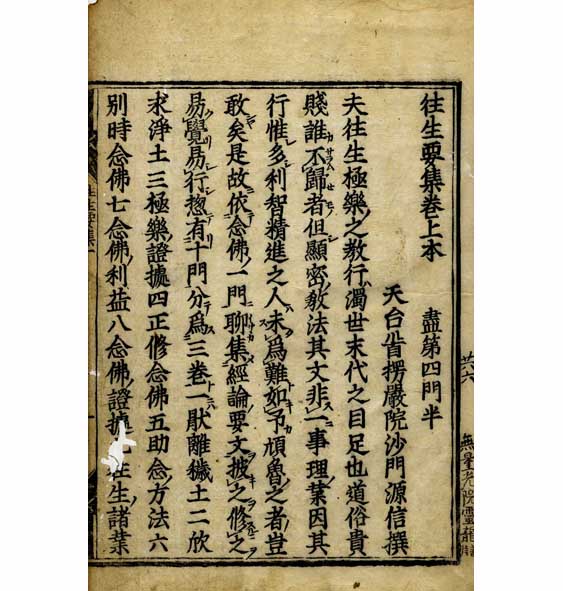 廿六
徃生要集卷上本 盡第四門半
天台首楞嚴院沙門源信撰
夫徃生極樂之教行濁世末代之目足也道俗貴
賤誰不歸者但顯密教法其文非一事理業因其
行惟多利智精進之人未爲難如予頑魯之者豈
敢矣是故依念佛一門聊集經論要文披之修之
易覺易行惣有十門分爲三卷一猒離穢土二欣
求淨土三極樂證據四正修念佛五助念方法六
別時念佛七念佛利益八念佛證據徃生諸業